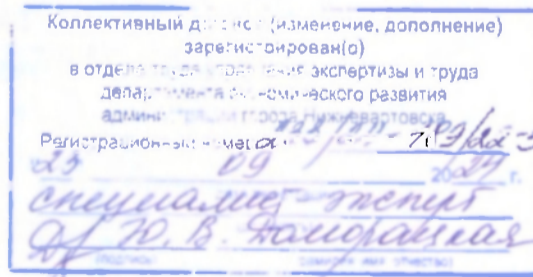 Коллективный договор (изменение, дополнение)
зарегистрирован(о)
в отделе труда управления экспертизы и труда
департамента экономического развития
администрации города Нижневартовска
Регистрационный номер
23 09 20 г.
специалист-эксперт
Ю. В. Доморацкая
(подпись) (фамилия имя отчество)